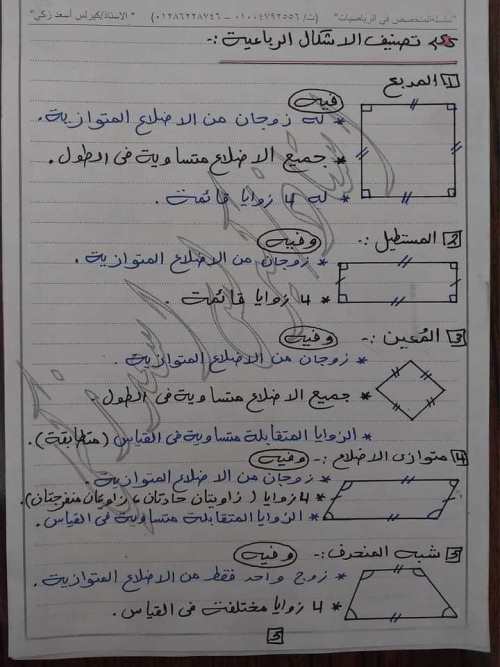 "سلسلة المتخصص في الرياضيات" (ت/ ٠١٠٠٤٧٩٢٥٥٦ - ٠١٢٨٦٢٢٨٧٤٦) "الأستاذ/كيرلس أسعد زكي"
تصنيف الاشكال الرباعية :-
1 المربع
فيه
* له زوجان من الاضلاع المتوازية.
* جميع الاضلاع متساوية فى الطول.
* له 4 زوايا قائمة.
2 المستطيل :- وفيه
* زوجان من الاضلاع المتوازية.
* 4 زوايا قائمة.
3 المُعين :- وفيه
* زوجان من الاضلاع المتوازية.
* جميع الاضلاع متساوية فى الطول.
* الزوايا المتقابلة متساوية فى القياس (متطابقة).
4 متوازى الاضلاع :- وفيه
* زوجان من الاضلاع المتوازية.
* 4 زوايا (زاويتان حادتان، زاويتان منفرجتان).
* الزوايا المتقابلة متساوية فى القياس.
5 شبه المنحرف :- وفيه
* زوج واحد فقط من الاضلاع المتوازية.
* 4 زوايا مختلفة فى القياس.
5